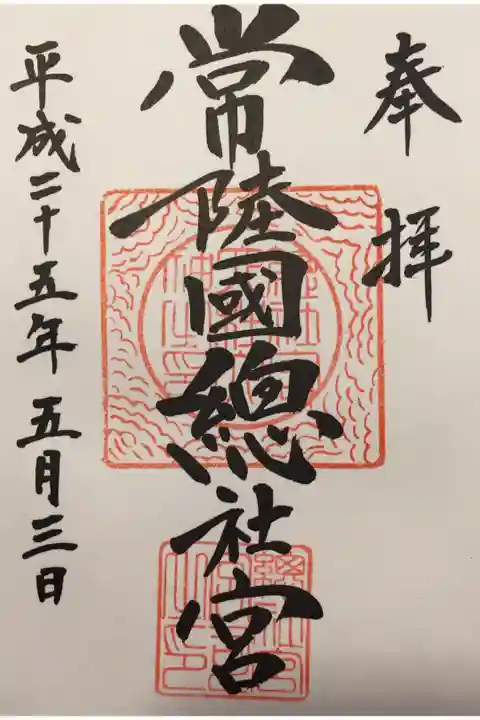 奉拝
常陸國總社宮
平成二十五年五月三日